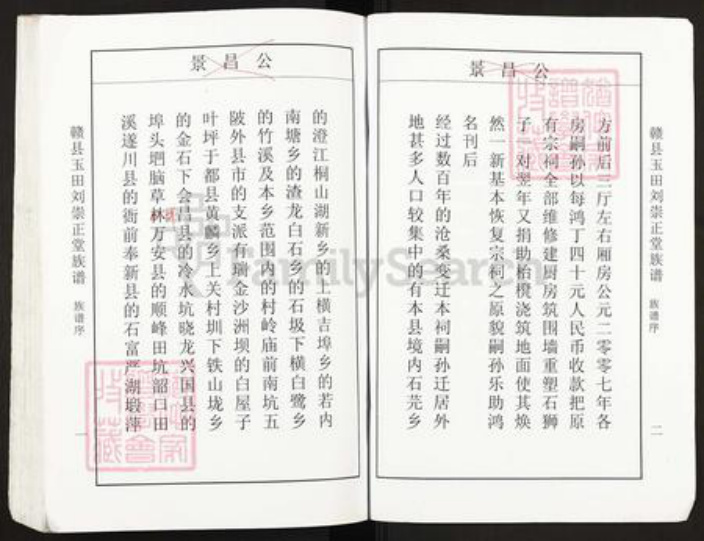 公昌景
方前后三厅左右厢房公元二零零七年各
房嗣孙以每鸿丁四十元人民币收款把原
有宗祠全部维修建厨房筑围墙重塑石狮
子一对翌年又捐助枱櫈浇筑地面使其焕
然一新基本恢复宗祠之原貌嗣孙乐助鸿
名刊后
经过数百年的沧桑变迁本祠嗣孙迁居外
地甚多人口较集中的有本县境内石芫乡
赣县玉田刘崇正堂族谱
族谱序
二
公昌景
的澄江桐山湖新乡的上横吉埠乡的若内
南塘乡的渣龙白石乡的石圾下横白鹭乡
的竹溪及本乡范围内的村岭庙前南坑五
陂外县市的支派有瑞金沙洲坝的白屋子
叶坪于都县黄麟乡上关村圳下铁山垅乡
的金石下会昌县的冷水坑晓龙兴国县的
埠头垇脑草林万安县的顺峰田坑韶口田
溪遂川县的衙前奉新县的石富严湖塅萍
赣县玉田刘崇正堂族谱
族谱序
一
FamilySearch